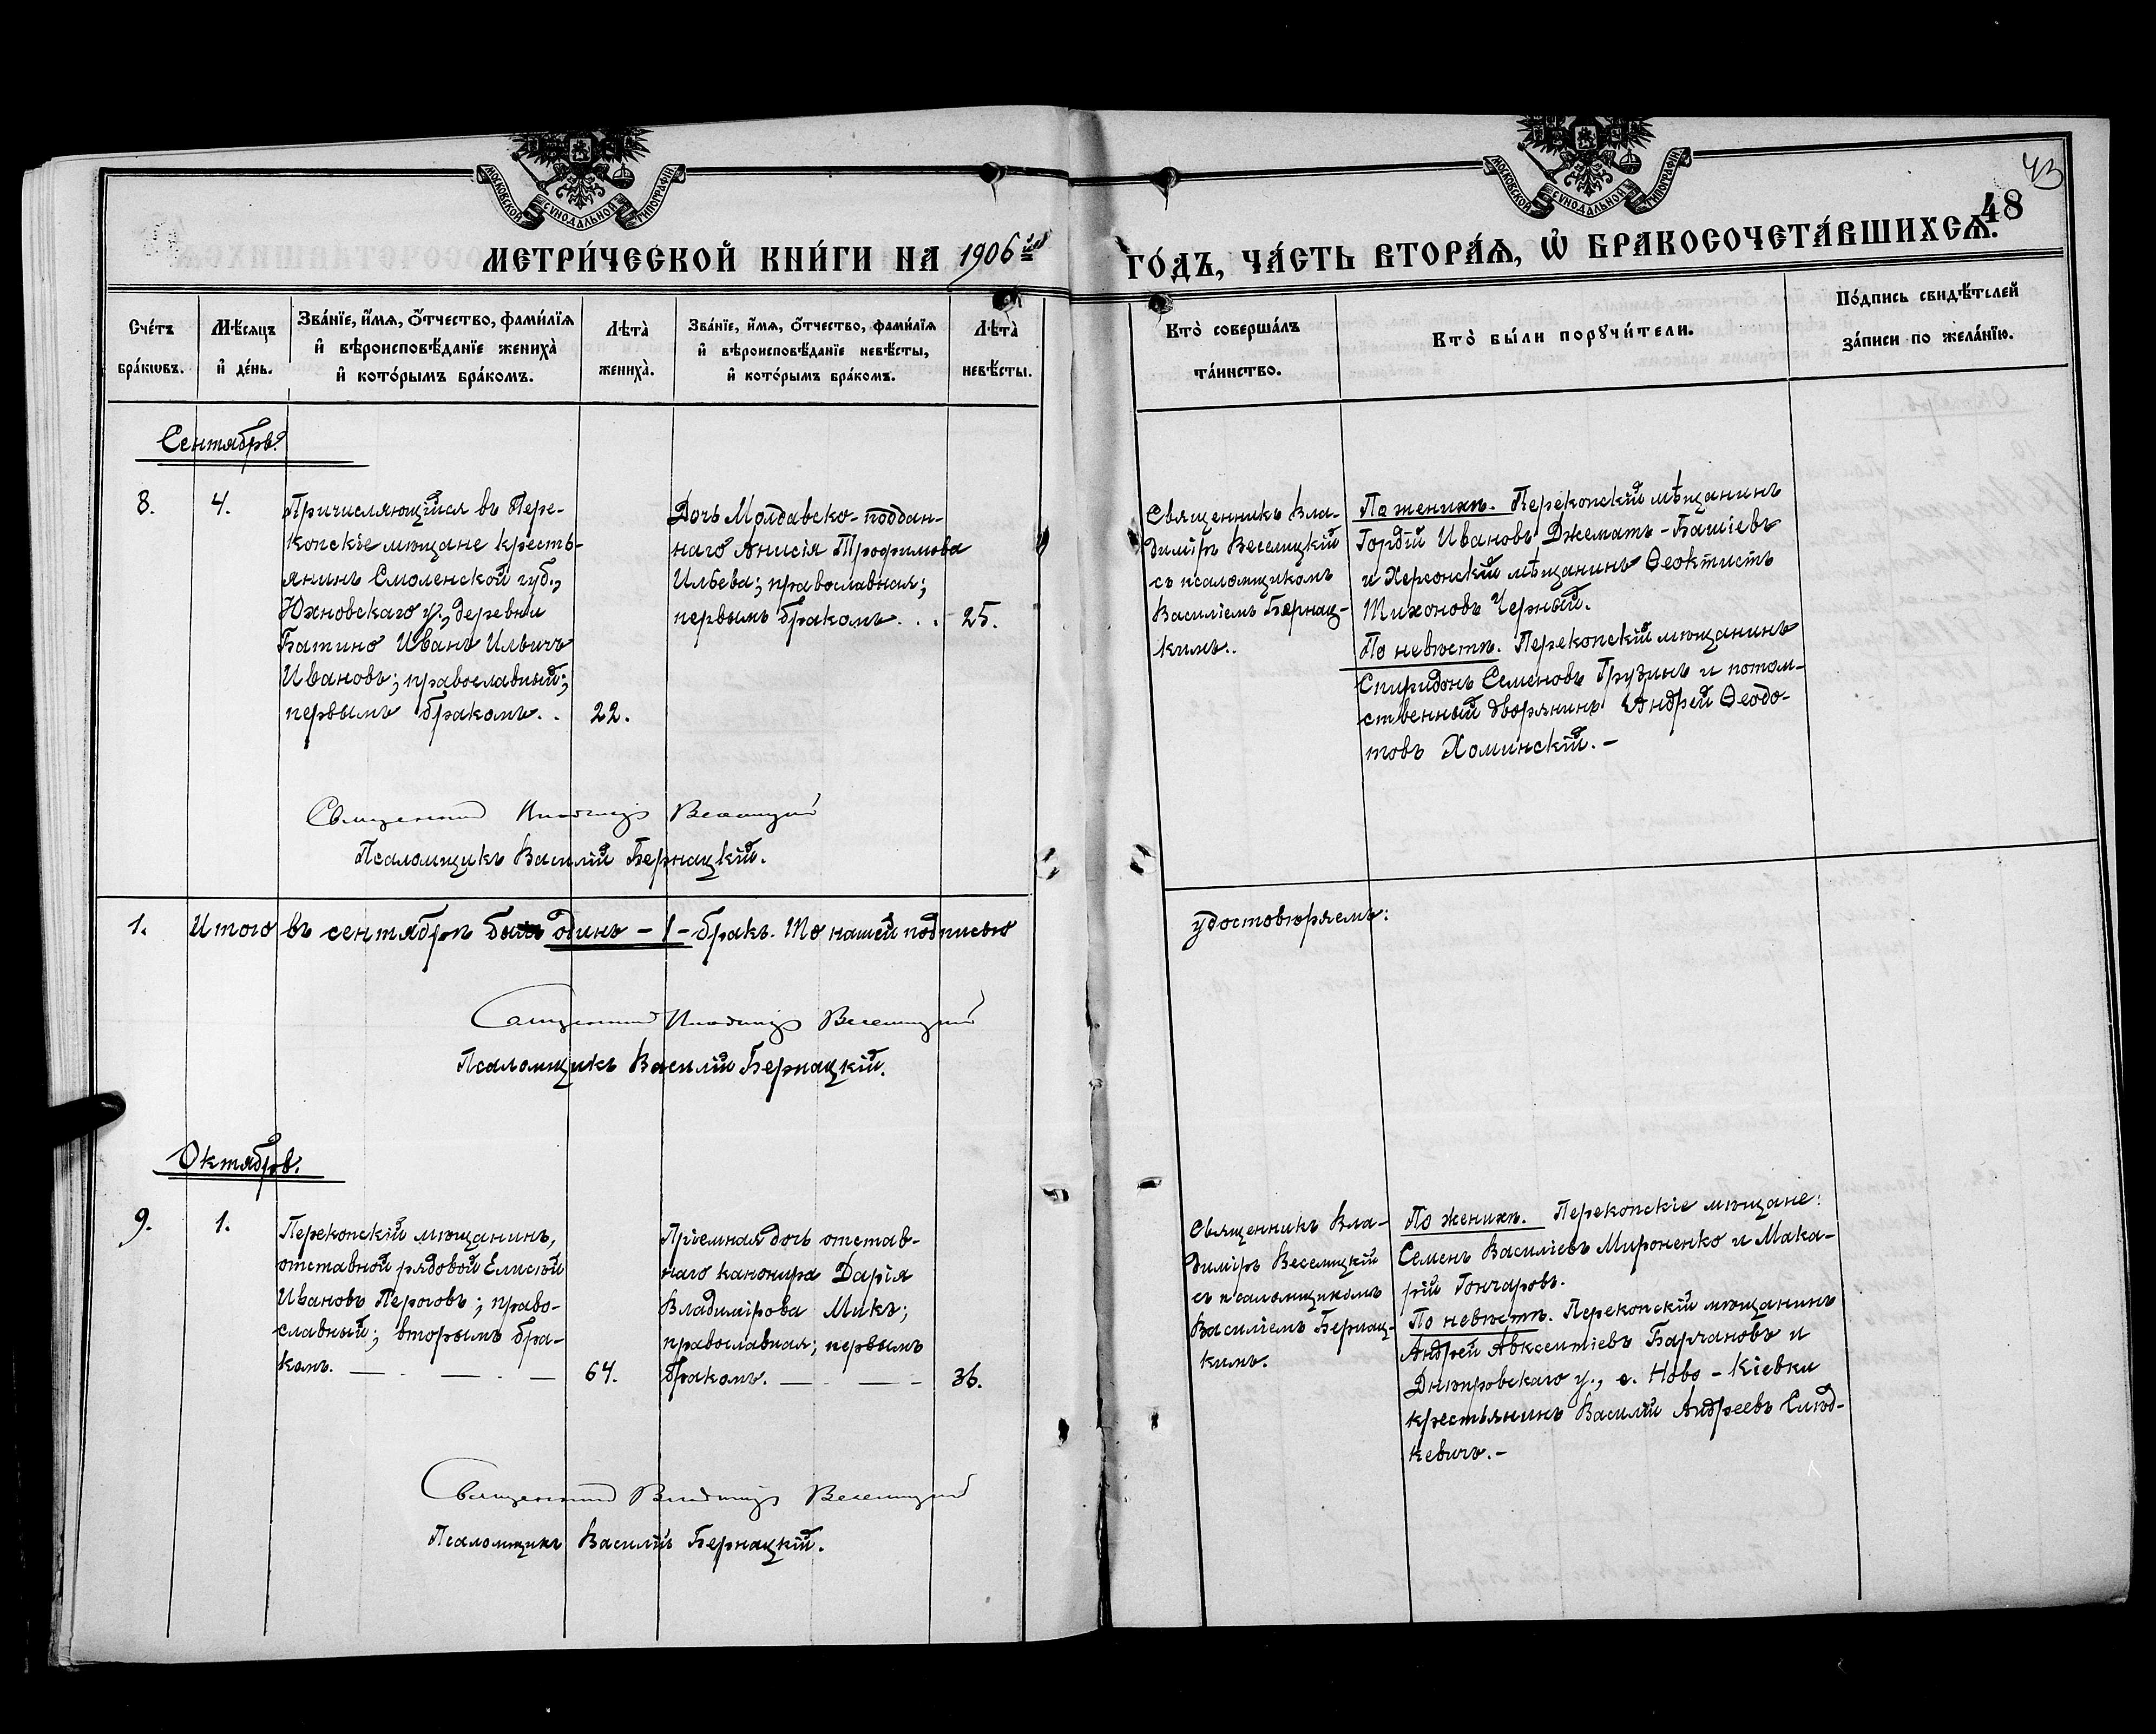 МОСКОВСКОЙ СѴНОДАЛЬНОЙ ТИПОГРАФІИ
МОСКОВСКОЙ СѴНОДАЛЬНОЙ ТИПОГРАФІИ
43
48
МЕТРИ́ЧЕСКОЙ КНИ́ГИ НА 1906 й
ГО́ДЪ, ЧА́СТЬ ВТОРА́Ѧ, Ѡ҆ БРАКОСОЧЕТА́ВШИХСѦ.
Сче́тъ бра́кѡвъ.
Мѣ́сяцъ и҆ де́нь.
Зва́нїе, и҆́мѧ, ѻ҆́тчество, фами́лїѧ и҆ вѣроисповѣ́данїе жениха̀ и҆ кото́рымъ бра́комъ.
Лѣта̀ жениха̀.
Зва́нїе, и҆́мѧ, ѻ҆́тчество, фами́лїѧ и҆ вѣроисповѣ́данїе невѣ́сты, и҆ кото́рымъ бра́комъ.
Лѣта̀ невѣ́сты.
Кто̀ соверша́лъ та́инство.
Кто̀ бы́ли порꙋчи́тели.
По́дпись свидѣ́телей за́писи по жела́нїю.
Сентябрь.
8.
4.
Причисляющійся въ Пере-
копскіе мѣщане кресть-
янинъ Смоленской губ.,
Юхновскаго у., деревни
Батино Иванъ Ильичъ
Ивановъ; православный;
первымъ бракомъ. .
22.
Дочь Молдавско-поддан-
наго Анисія Трофимова
Ильева; православная;
первымъ бракомъ. . .
25.
Священникъ Вла-
димiръ Веселицкій
съ псаломщикомъ
Василіемъ Бернац-
кимъ..
По женихѣ. Перекопскій мѣщанинъ
Гордій Ивановъ Джемать-Башіевъ
и Херсонскій мѣщанинъ Ѳеоктистъ
Тихоновъ Черный.
По невѣстѣ. Перекопскій мѣщанинъ
Спиридонъ Семеновъ Грузинъ и потом-
ственный дворянинъ Андрей Ѳеодо-
товъ Хоминскій.-
Священникъ Владиміръ Веселицкій
Псаломщикъ Василій Бернацкій.
1.
Итого въ сентябрѣ былъ одинъ -1- бракъ. То нашей подписью
удостовѣряемъ:
Священникъ Владиміръ Веселицкій
Псаломщикъ Василій Бернацкій.
Октябрь.
9.
1.
Перекопскій мѣщанинъ,
отставной рядовой Елисей
Ивановъ Пероговъ; право-
славный; вторымъ бра-
комъ. — . — . —
64.
Пріемная дочь отстав-
наго канонира Дарія
Владимірова Микъ;
православная; первымъ
бракомъ. — . — -
36.
Священникъ Вла-
диміръ Веселицкій
съ псаломщикомъ
Василіемъ Бернац-
кимъ.
По женихѣ. Перекопскіе мѣщане:
Семенъ Василіевъ Мироненко и Мака-
рій Гончаровъ.
По невѣстѣ. Перекопскій мѣщанинъ
Андрей Авксентіевъ и
Днѣпровскаго у., с. Ново-Кіевки
крестьянинъ Василій Андреевъ
кевичъ.-
Священникъ Владиміръ Веселицкій
Псаломщикъ Василій Бернацкій.